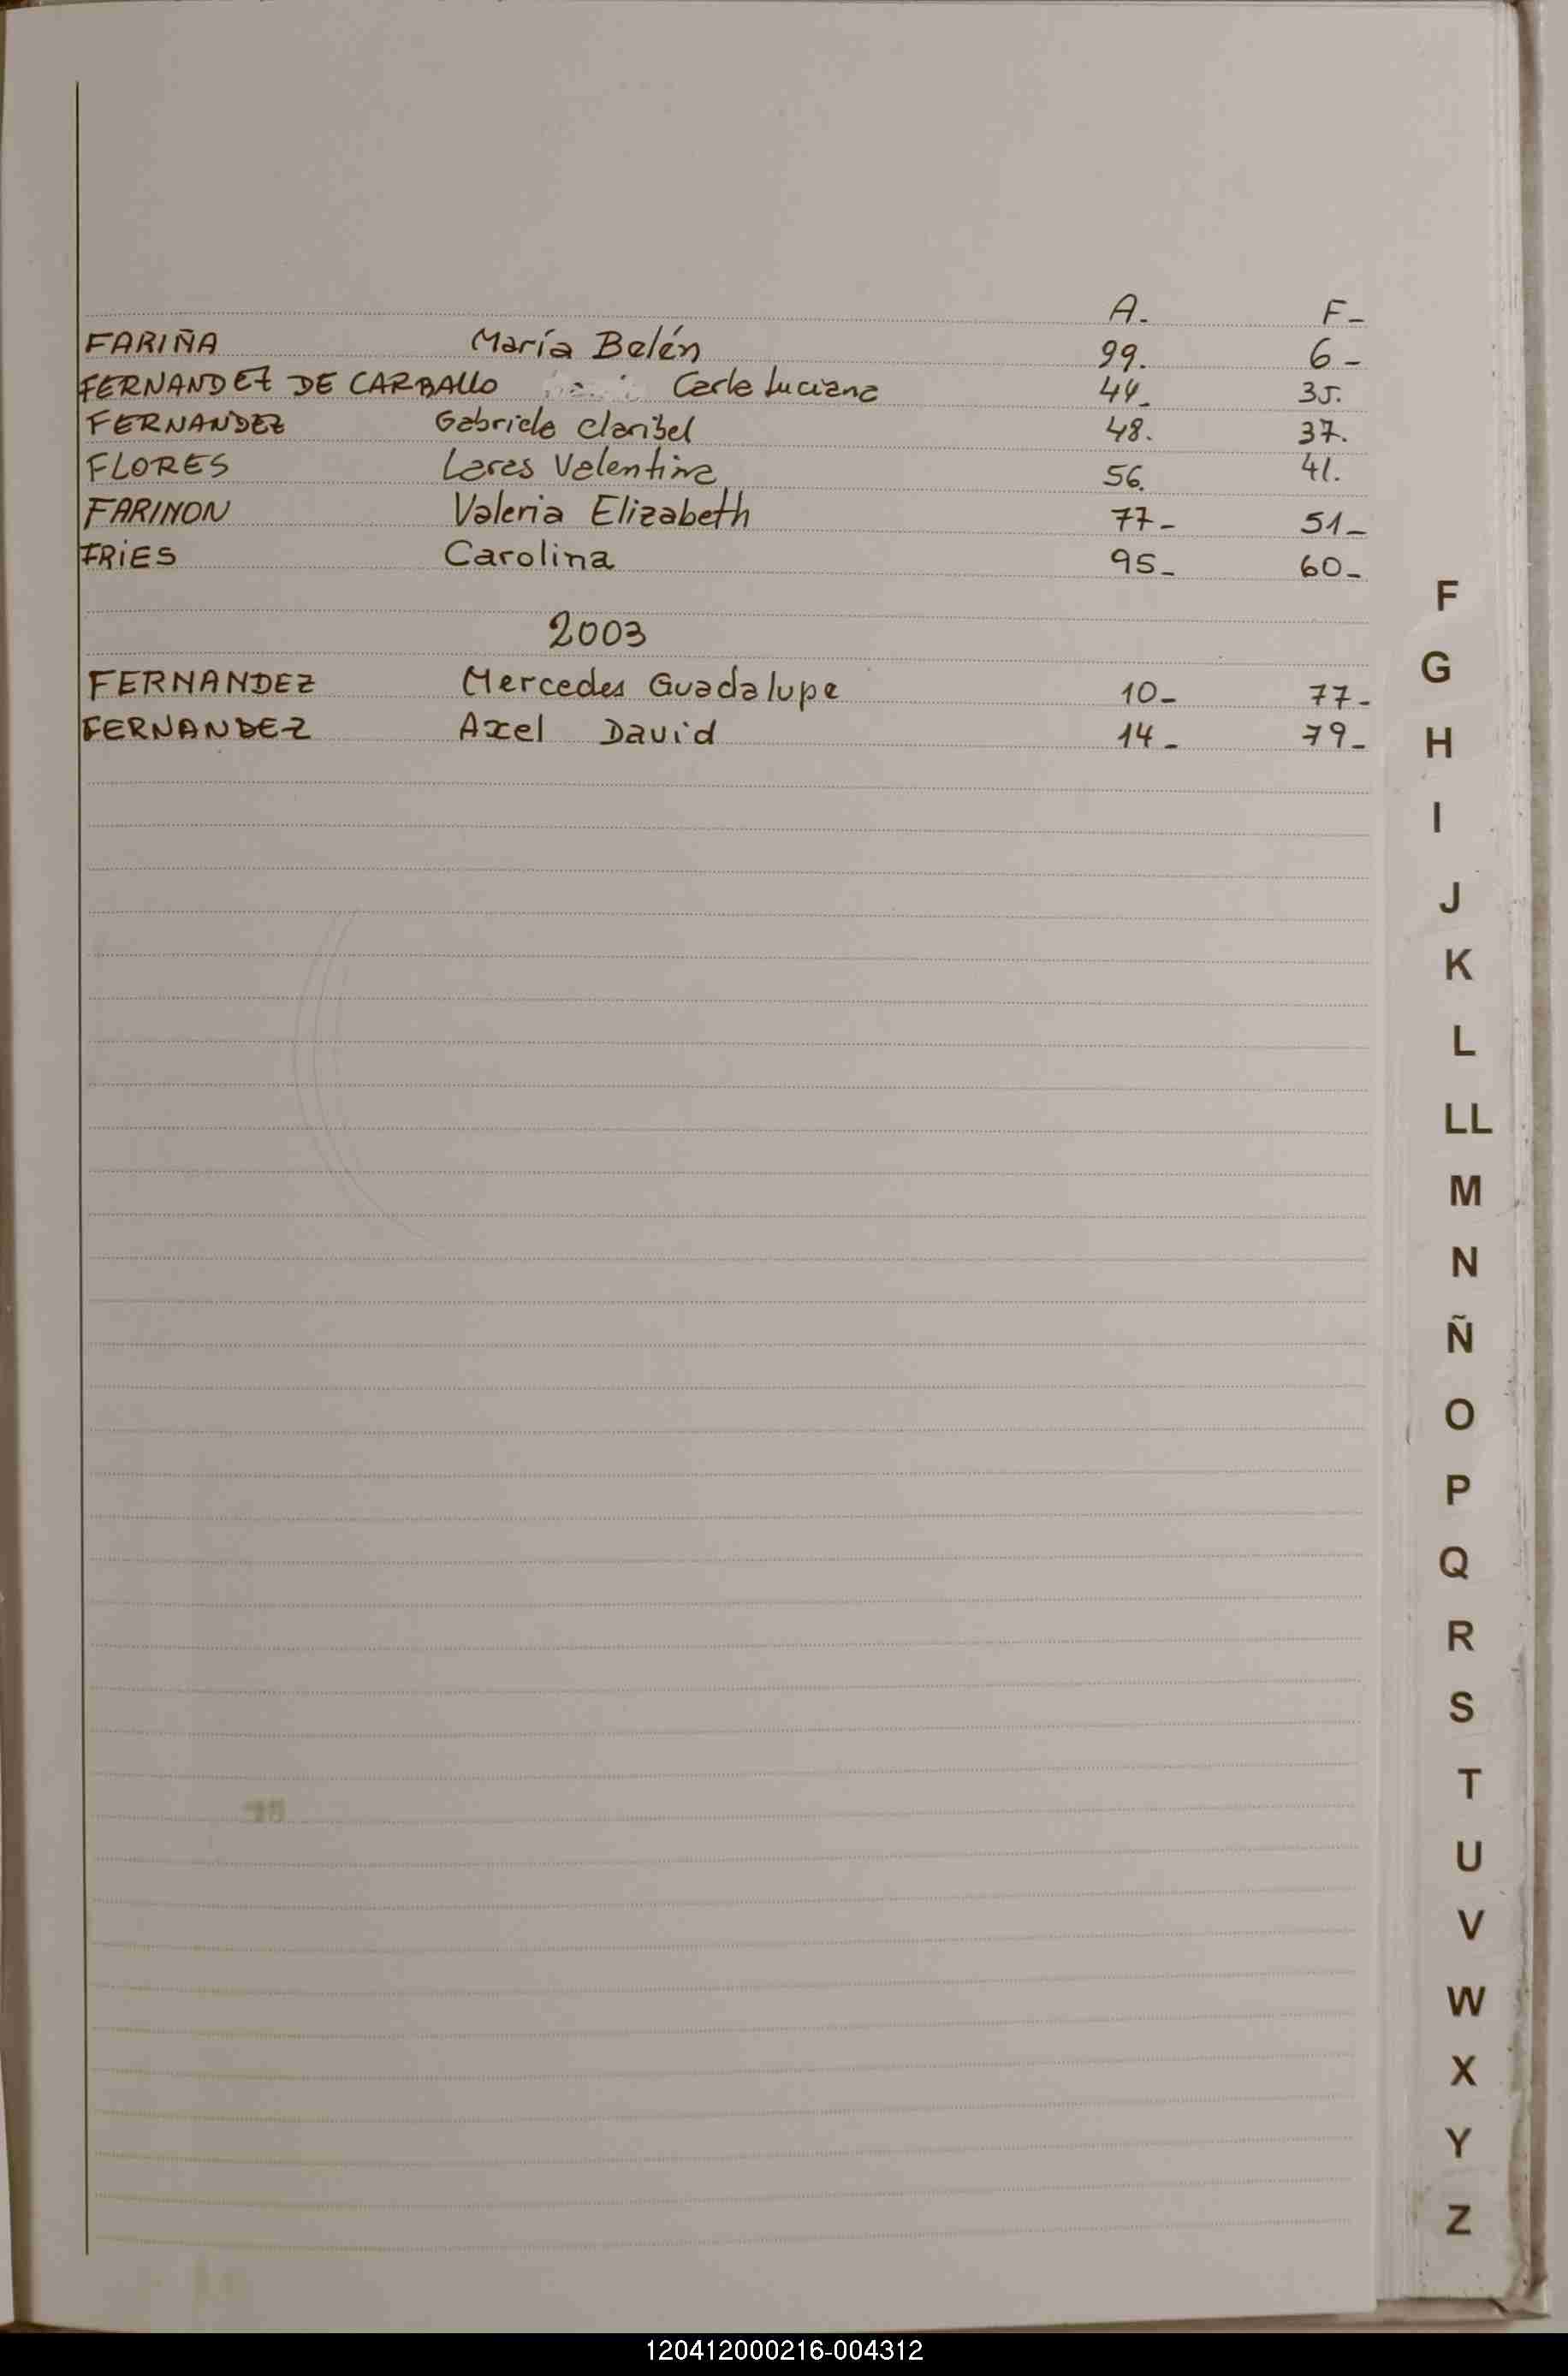 A. F-
FARIÑA María Belén 99. 6-
FERNANDEZ DE CARBALLO Carla Luciana 44- 35.
FERNANDEZ Gabriela Claribel 48. 37.
FLORES Valentina 56. 41.
FARINON Valeria Elizabeth 77- 51-
FRIES Carolina 95- 60-
2003
FERNANDEZ Mercedes Guadalupe 10- 77-
FERNANDEZ Axel David 14- 79-
F
G
H
I
J
K
L
LL
M
N
Ñ
O
P
Q
R
S
T
U
V
W
X
Y
Z
120412000216-004312